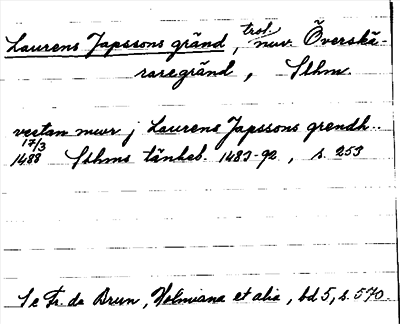 Laurens Japssons gränd, trol. nuv. Överskä-
raregränd, Sthm.
vestan mwr j Laurens Japssons grendh..
17/3 1488 Sthms tänkeb. 1483-92, s. 253
Se Fr. de Brun, Holmiana et alia, bd 5, s. 570.